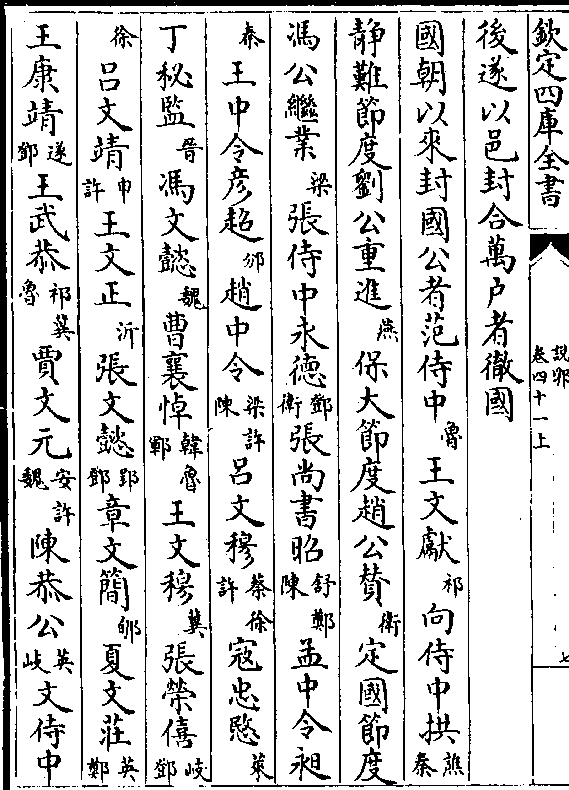 欽定四庫全書
說郛
卷四十一上
七
後遂以邑封合萬户者徹國
國朝以來封國公者范侍中魯王文獻祁向侍中拱譙秦
静難節度劉公重進燕保大節度趙公贊衛定國節度
馮公繼業梁張侍中永德鄧衛張尚書昭舒鄭陳孟中令昶
秦王中令彦超邠趙中令梁許陳吕文穆蔡徐許寇忠愍萊
丁秘監晉馮文懿魏曹襄悼韓魯鄆王文穆冀張榮僖岐鄧
徐吕文靖申許王文正沂張文懿郢鄧章文簡郇夏文莊英鄭
王康靖遂鄧王武恭祁冀魯賈文元安許魏陳恭公英岐文侍中